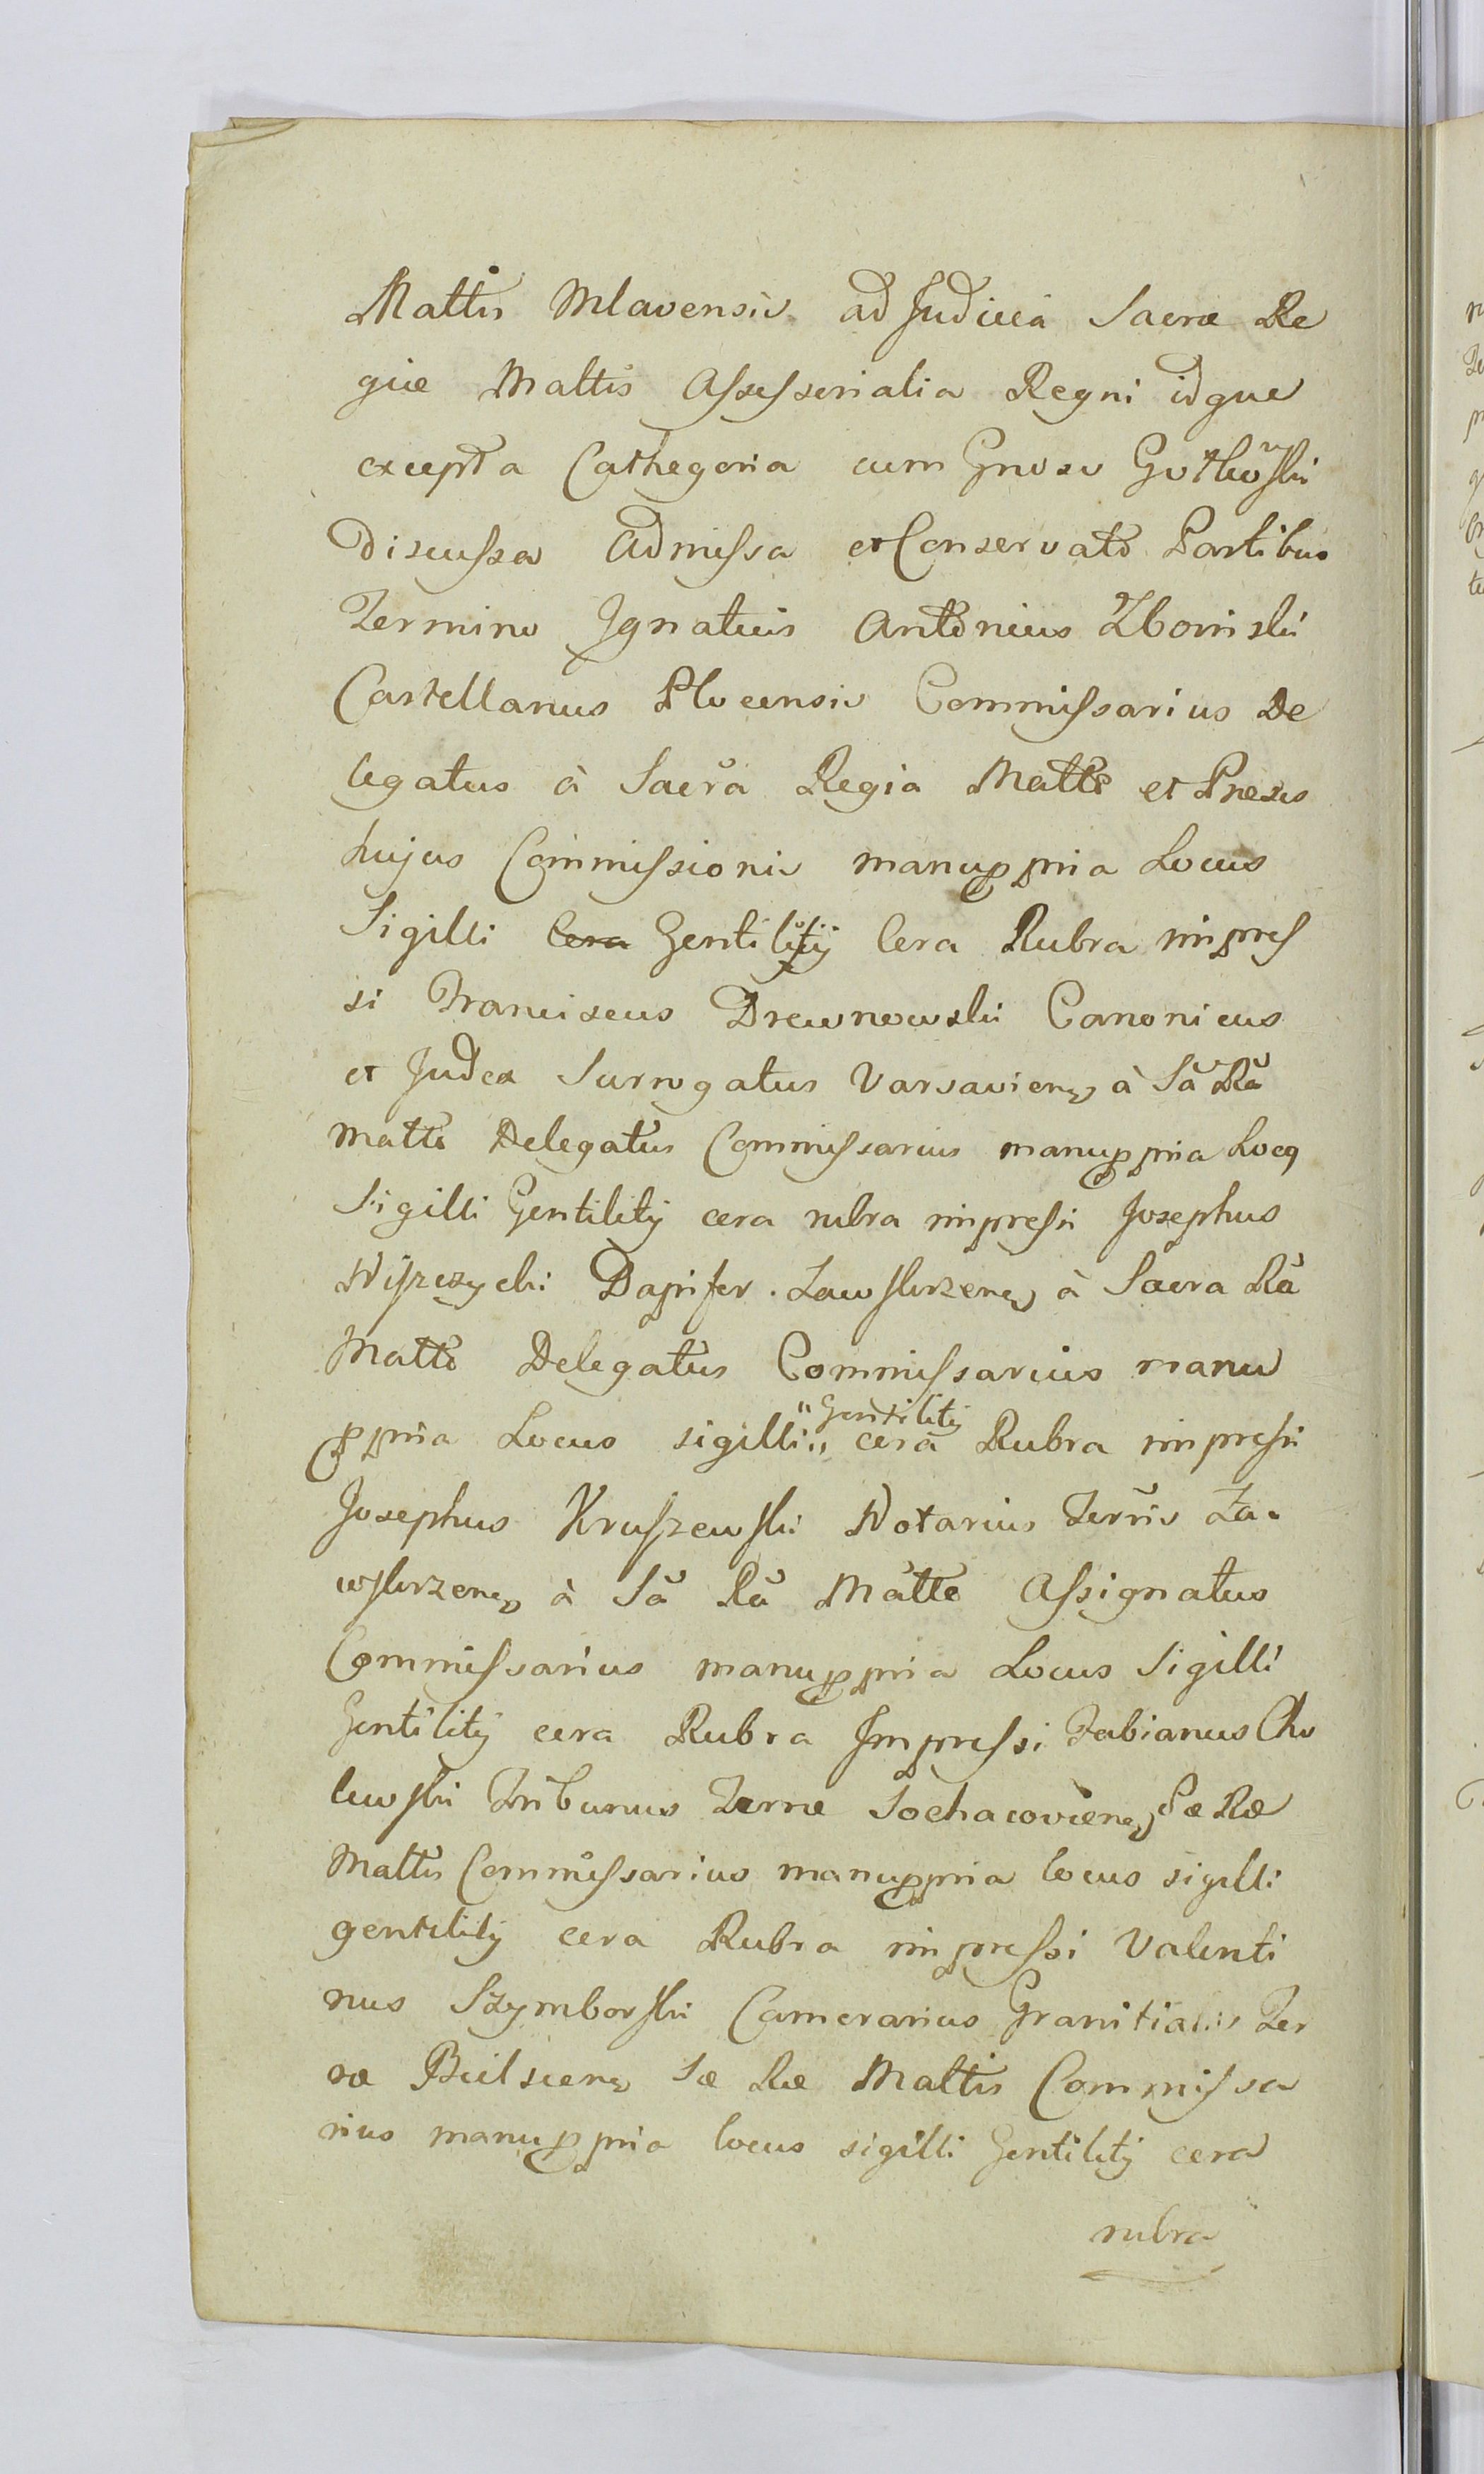 Mattis Mlavensis ad Judicia Sacræ Re
giæ Mattis Assessorialia Regni idque
excepta Cathegoria cum Gnoso Gotkõski
discussa Admissa et Conservato Partibus
Termino Ignatius Antonius Zboinski
Castellanus Plocensis Commissarius De
legatus à Sacra Regia Matte et Præses
hujus Commissionis manuppria Locus
Sigilli Cera Gentilitij Cera Rubra impres
si Franciscus Drewnowski Canonicus
et Judex Surrogatus Varsaviens à Sã Rã
Matte Delegatus Commissarius manuppria Locq
Sigilli Gentilitij cera rubra impressi Josephus
Niszczycki Dapifer Zawskrzens à Sacra Rã
Matte Delegatus Commissarius manu
ppria Locus sigilli " Gentilitij cera Rubra impressi
Josephus Kruszewski Notarius Terris Za=
wskrzens à Sã Rã Matte Assignatus
Commissarius manuppria Locus Sigilli
Gentilitij cera Rubra Impressi Fabianus Cho
lewski Tribunus Terræ Sochacoviens Sæ Ræ
Mattis Commissarius manuppria locus sigilli
gentilitij cera Rubra impressi Valenti
nus Szymborski Camerarius Granitialis Ter
ræ Bielscens Sæ Ræ Mattis Commissa
rius manuppria locus sigilli Gentilitij cera
rubra